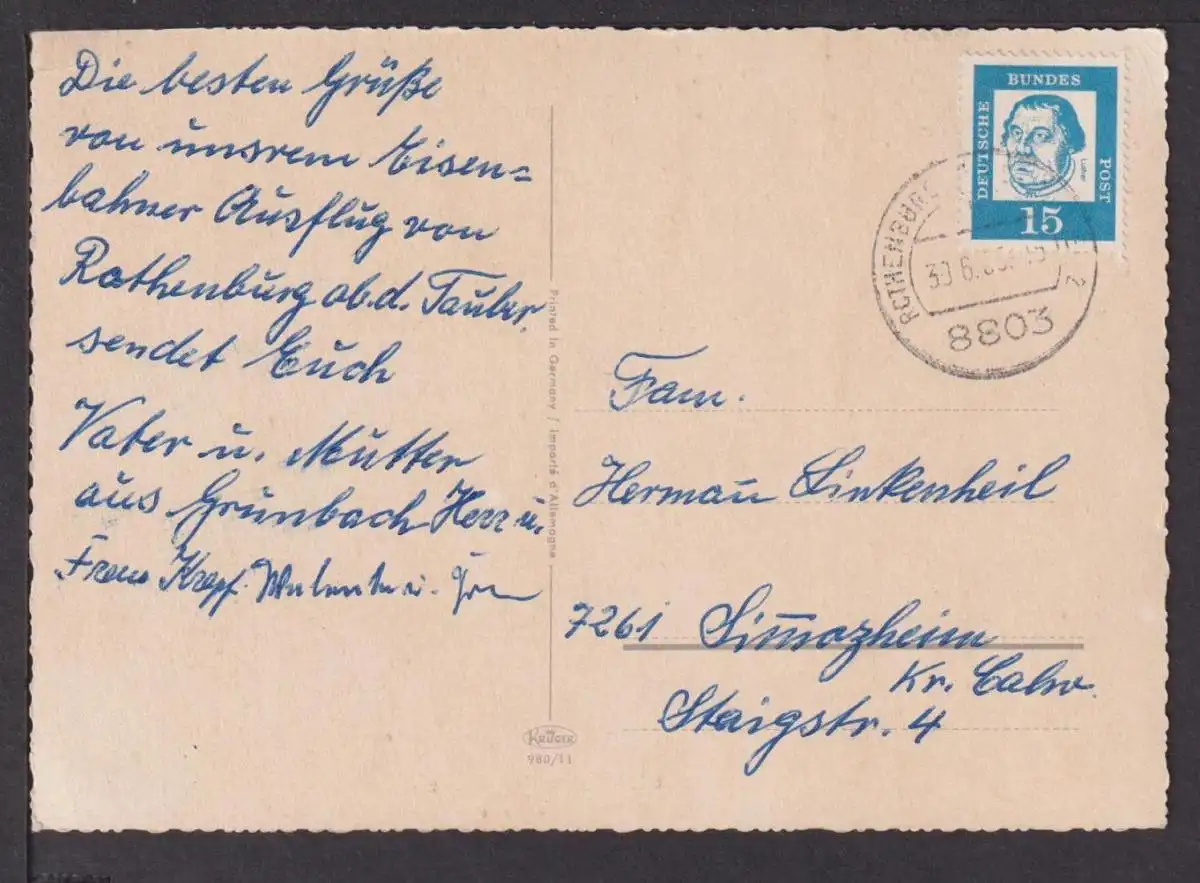 Die besten Grüße
von unsrem Eisen=
bahner Ausflug von
Rothenburg ob. d. Tauber.
sendet Euch
Vater u. Mutter
aus Grunbach Herr u.
Frau Krapf.
Printed in Germany / Importé d'Allemagne
KRÜGER
980/11
DEUTSCHE BUNDES POST
Luther
15
ROTHENBURG
30.6.
2
8803
Fam.
Hermann Linkenheil
7261 Simmozheim
Kr. Calw.
Staigstr. 4